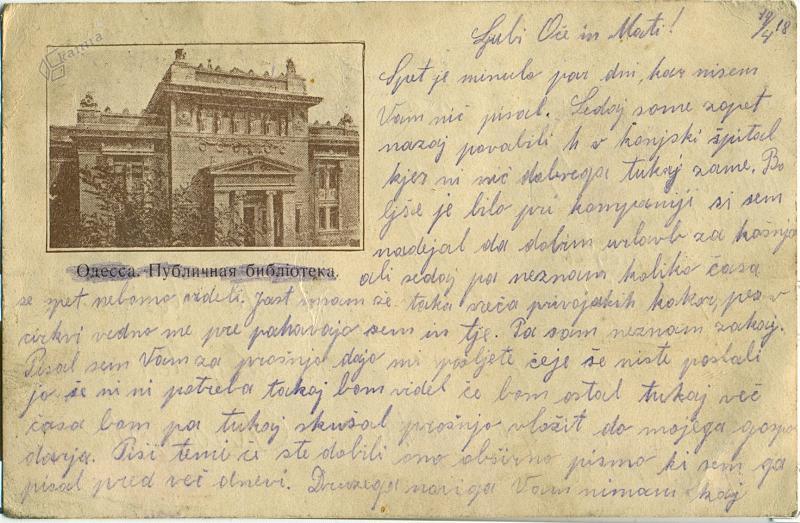 kamra
19/4 18
Ljubi Oče in Mati!
Spet je minulo par dni, kar nisem
Vam nič pisal. Sedaj some zopet
nazaj povabili k v konjski špital
kjer ni nič dobrega tukaj zame. Bo
ljše je bilo pri kompaniji si sem
nadejal da dobim urlavb za košnjo
Одесса. Публичная библіотека.
ali sedaj pa neznam koliko časa
se spet nebomo videli. Jast imam že taka sreča privojakih kakor, pes v
cirkvi vedno me pre pahavajo sem in tje. Pa sam neznam zakaj.
Pisal sem Vam za prošnjo dajo mi pošljete čeje še niste poslali
jo še ni ni potreba takaj bom videl če bom ostal tukaj več
časa bom pa tukaj skušal prošnjo vložit do mojega gospo
darja. Piši temi če ste dobili ono obširno pismo ki sem ga
pisal pred več dnevi. Druzega noviga Vam nimam kaj